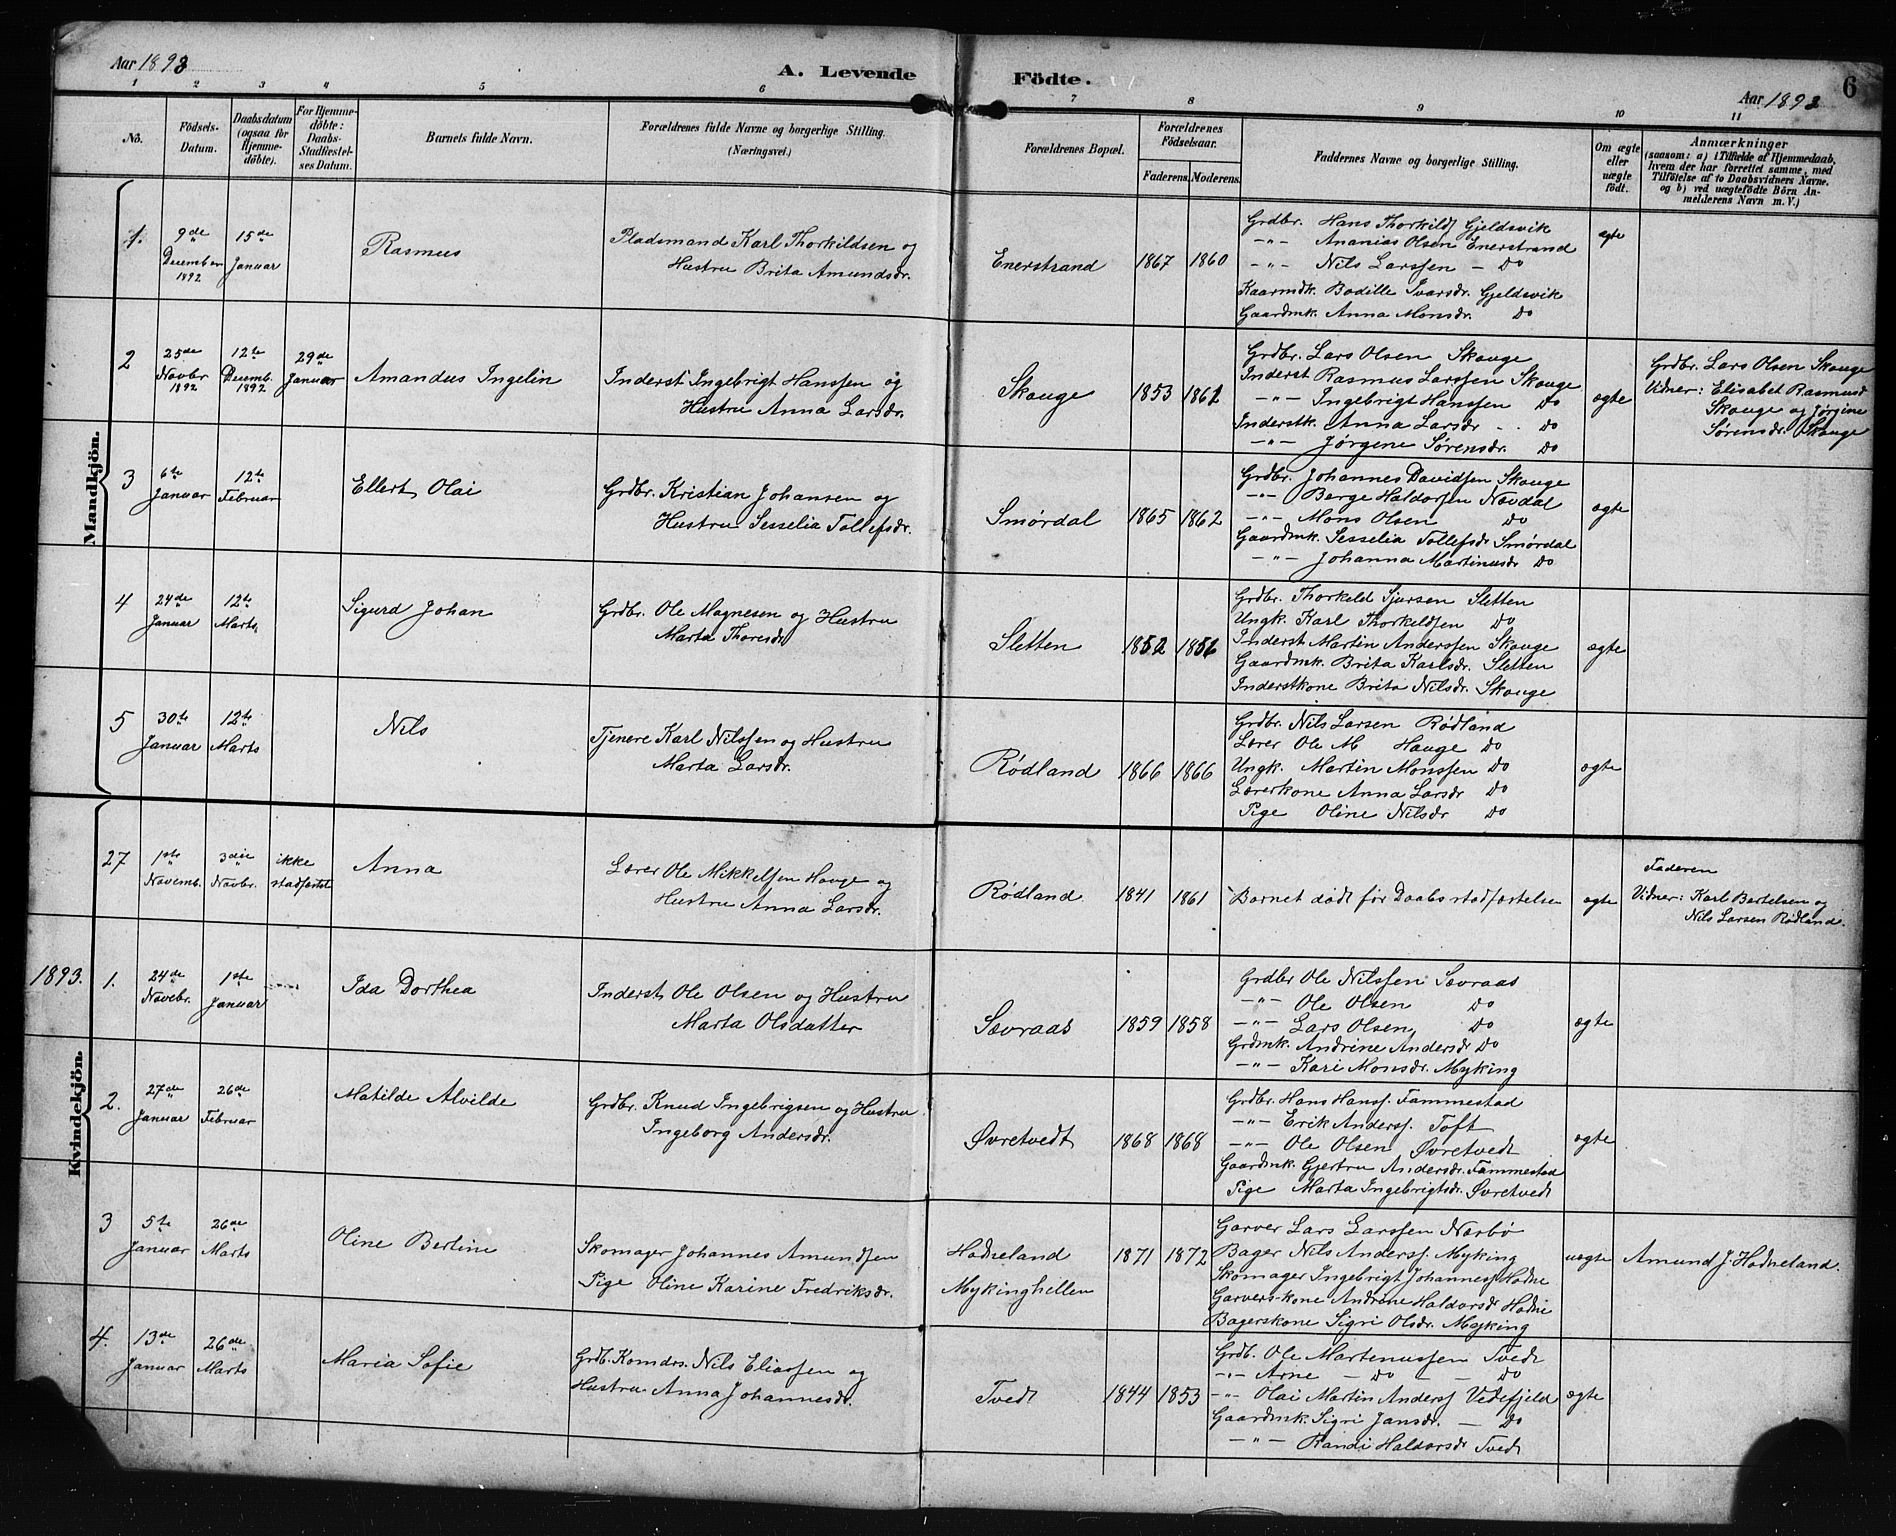 Aar 1893
A. Levende
Födte.
Aar 1893
6
1 2 3 4 5 6 7 8 9 10 11
No.
Födsels-
Datum.
Daabsdatum
(ogsaa for
Hjemme-
döbte).
For Hjemme-
döbte:
Daabs-
Stadfæstel-
ses Datum.
Barnets fulde Navn.
Forældrenes fulde Navne og borgerlige Stilling.
(Næringsvei.)
Forældrenes Bopæl.
Forældrenes
Födselsaar.
Faderens.
Moderens.
Faddernes Navne og borgerlige Stilling.
Om ægte
eller
uægte
födt.
Anmærkninger
(saasom: a) i Tilfælde af Hjemmedaab,
hvem der har forrettet samme, med
Tilföielse af to Daabsvidners Navne.
og b) ved uægtefödte Börn An-
melderens Navn m. V.)
Mandkjön.
1.
9de
December
1892
15de
Januar
Rasmus
Pladsmand Karl Thorkildsen og
Hustru Brita Amundsdr.
Enerstrand
1867
1860
Grdbr. Hans Thorkilds Gjeldsvik
-"- Ananias Olsen Enerstrand
-"- Nils Larssen - Do
Kaarmdk. Bodille Ivarsdr. Gjeldsvik
Gaardmk. Anna Monsdr. Do
ægte
2
25de
Novbr
1892
12te
Decemb.
1892
29de
Januar
Amandus Ingelin
Inderst Ingebrigt Hanssen og
Hustru Anna Larsdr.
Skauge
1853
1862
Grdbr. Lars Olsen Skauge
Inderst Rasmus Larssen Skauge
-"- Ingebrigt Hanssen Do
Inderstk. Anna Larsdr - Do
-"- Jørgene Sørensdr. Do
ægte
Grdbr. Lars Olsen Skauge
Vidner: Elisabet Rasmusd
Skauge og Jørgine
Sørensdr. Skauge
3
6te
Januar
12te
Februar
Ellert Olai
Grdbr. Kristian Johansen og
Hustru Sesselia Tollefsdr.
Smørdal
1865
1862
Grdbr. Johannes Davidsen Skauge
-"- Børge Haldorsen Nævdal
-"- Mons Olsen Do
Gaardmk. Sesselia Tollefsdr Smørdal
-"- Johanna Martinusdr Do
ægte
4
24de
Januar
12te
Marts
Sigurd Johan
Grdbr. Ole Magnesen og Hustru
Marta Thoresdr
Sletten
1852
1856
Grdbr. Thorkeld Sjursen Sletten
Ungk. Karl Thorkeldsen Do
Inderst Martin Anderssen Skauge
Gaardmk. Brita Karlsdr. Sletten
Inderstkone Brita Nilsdr. Skauge
ægte
5
30te
Januar
12te
Marts
Nils
Tjenere Karl Nilssen og Hustru
Marta Larsdr.
Rødland
1866
1866
Grdbr. Nils Larsen Rødland
Lærer Ole M Hauge Do
Ungk. Martin Monssen Do
Lærerkone Anna Larsdr Do
Pige Oline Nilsdr Do
ægte
Kvindekjön.
27
1ste
Novemb.
3die
Novbr.
ikke
stadfæstet
Anna
Lærer Ole Mikkelsen Hauge og
Hustru Anna Larsdr.
Rødland
1841
1861
Barnet døde før Daabsstadfæstelsen
ægte
Faderen
Vidner: Karl Bertelsen og
Nils Larsen Rødland.
1893.
1.
24de
Novebr.
1ste
Januar
Ida Dorthea
Inderst Ole Olsen og Hustru
Marta Olsdatter
Sævraas
1859
1858
Grdbr Ole Nilssen Sævraas
-"- Ole Olsen Do
-"- Lars Olsen Do
Grdmk. Andrine Andersdr Do
-"- Kari Monsdr. Myking
ægte
2.
27de
Januar
26de
Februar
Matilde Alvilde
Grdbr. Knud Ingebrigsen og Hustru
Ingeborg Andersdr.
Øvretvedt
1868
1868
Grdbr. Hans Hanss. Fammestad
-"- Erik Anderss. Toft
-"- Ole Olsen Øvretvedt
Gaardmk. Gjertru Andersdr. Fammestad
Pige Marta Ingebrigtsdr. Øvretvedt
ægte
3
5te
Januar
26de
Marts
Oline Bertine
Skomager Johannes Amundsen
Pige Oline Karine Fredriksdr.
Hodneland
Mykinghellen
1871
1872
Garver Lars Larssen Nørbø
Bager Nils Anderss. Myking
Skomager Ingebrigt Johanness Hodne
Garvers-kone Andrine Haldorsdr Hodne
Bagerskone Sigri Olsdr. Myking
uægte
Amund J. Hodneland.
4.
13de
Januar
26de
Marts
Maria Sofie
Grdb. Komdrs. Nils Eliassen og
Hustru Anna Johannesdr.
Tvedt
1844
1853
Grdb. Ole Martenussen Tvedt
-"- Arne - Do - - Do
-"- Olai Martin Anderss Vedefjeld
Gaardmk. Sigri Jansdr. - Do
-"- Randi Haldorsdr Tvedt
ægte